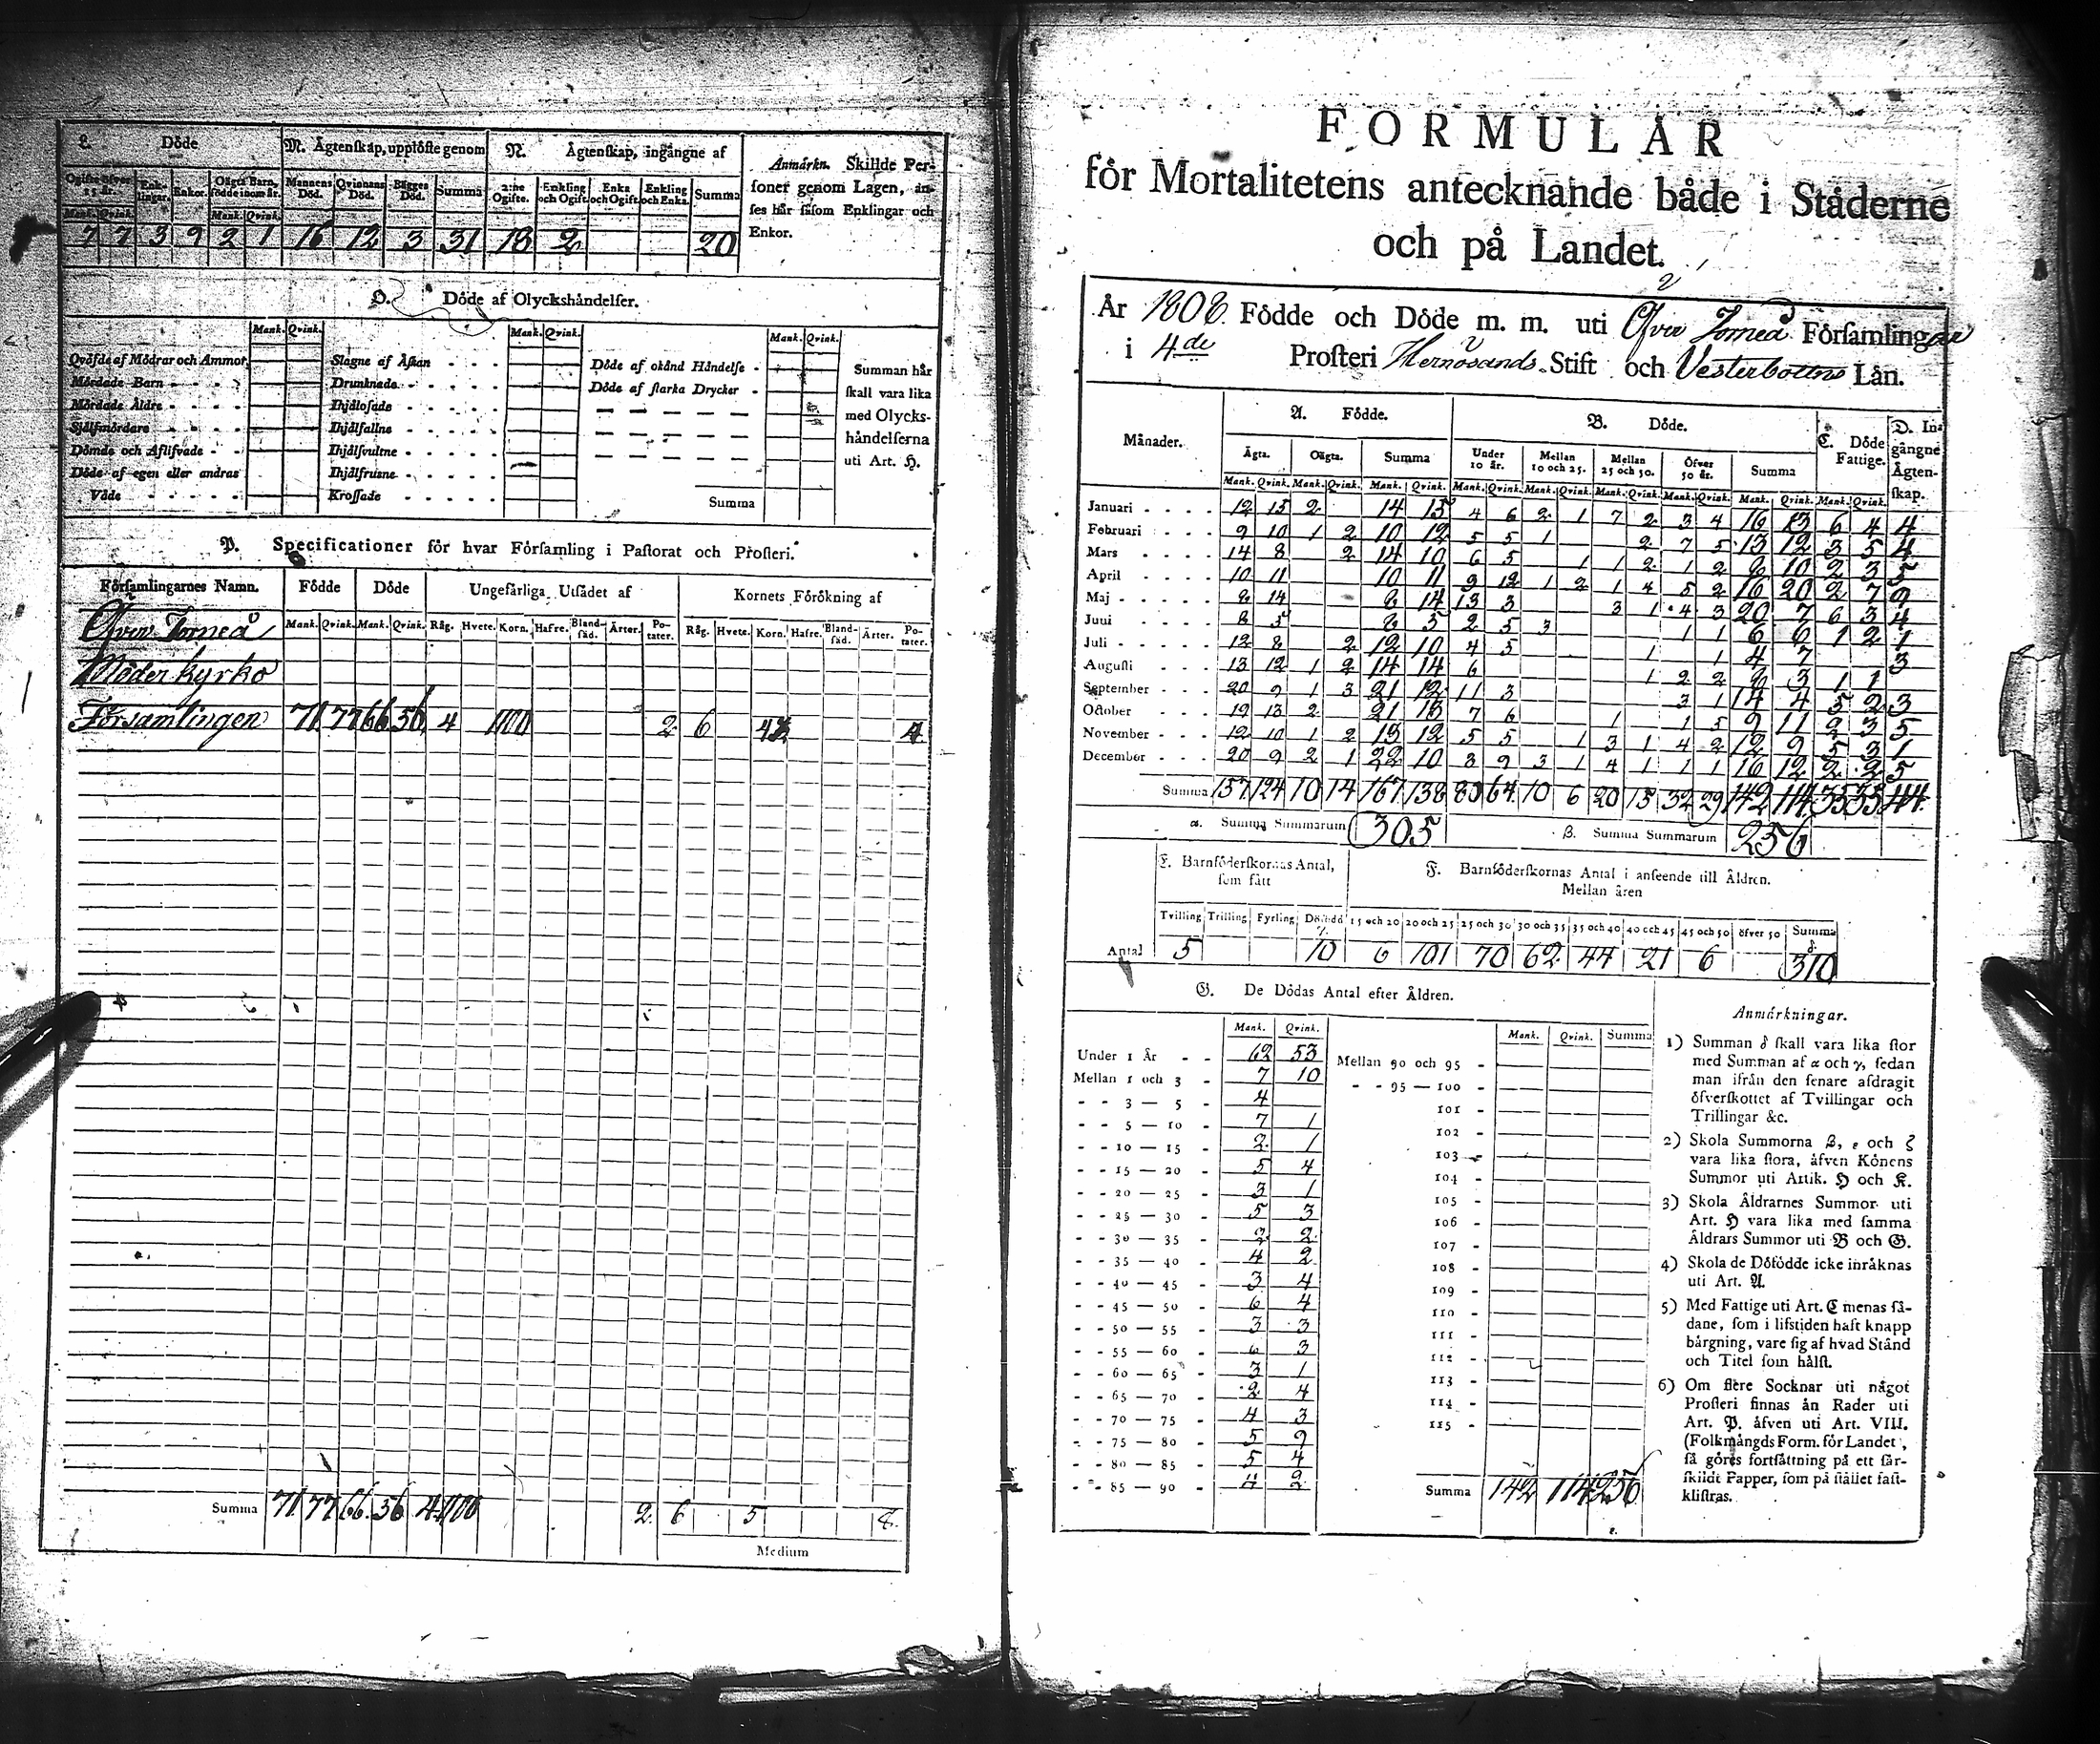 L. Döde
M. Ägtenskap, upplöste genom
N. Ägtenskap, ingångne af
Ogifte öfver 15 år.
Enklingar.
Enkor.
Oägta Barn, födde inom år.
Mannens Död.
Qvinnans Död.
Bägges Död.
Summa
2:ne Ogifte.
Enkling och Ogift.
Enka och Ogift.
Enkling och Enka.
Summa
Mank. Qvink. Mank. Qvink.
7 7 3 9 2 1 16 12 3 31 18 2 20
Anmärkn. Skillde Per-
soner genom Lagen, an-
ses här såsom Enklingar och
Enkor.
O. Döde af Olyckshändelser.
Mank. Qvink. Mank. Qvink. Mank. Qvink.
Qväfde af Mödrar och Ammor
Mördade Barn
Mördade Äldre
Självmördare
Dömde och Aflifvade
Döde af egen eller andras
Våde
Slagne af Åskan
Drunknade
Ihjälosade
Ihjälfallne
Ihjälsvultne
Ihjälfrusne
Krossade
Döde af okänd Händelse
Döde af starka Drycker
Summa
Summan här
skall vara lika
med Olycks-
händelserna
uti Art. H.
P. Specificationer för hvar Församling i Pastorat och Prosteri.
Församlingarnes Namn. Födde Döde Ungefärliga Utsädet af Kornets Förökning af
Mank. Qvink. Mank. Qvink. Råg. Hvete. Korn. Hafre. Bland-säd. Ärter. Po-tater. Råg. Hvete. Korn. Hafre. Bland-säd. Ärter. Po-tater.
Öfver Torneå
Moder kyrko
Församlingen 71 77 66 56 4 1100 2 6
Summa 71 77 66 56 4 1100 2 6 5 8
Medium
FORMULÄR
för Mortalitetens antecknande både i Städerne
och på Landet.
År 1808 Födde och Döde m. m. uti Öfver Torneå Församlingar
i 4de Prosteri Hernösands Stift och Vesterbottns Län.
Månader. A. Födde. B. Döde. C. Döde Fattige. D. In-gångne Ägten-skap.
Ägta. Oägta. Summa Under 10 år. Mellan 10 och 25. Mellan 25 och 50. Öfver 50 år. Summa
Mank. Qvink. Mank. Qvink. Mank. Qvink. Mank. Qvink. Mank. Qvink. Mank. Qvink. Mank. Qvink. Mank. Qvink. Mank. Qvink.
Januari 12 15 2 14 15 4 6 2 1 7 2 3 4 16 13 6 4 4
Februari 9 10 1 2 10 12 5 5 1 2 7 5 13 12 3 5 4
Mars 14 8 2 14 10 6 5 1 1 2 1 2 8 10 2 3 5
April 10 11 10 11 9 12 1 2 1 4 5 2 16 20 2 7 9
Maj 8 14 8 14 13 3 3 1 4 3 20 7 6 3 4
Juni 8 5 8 5 2 5 3 1 1 6 6 1 2 1
Juli 12 8 2 12 10 4 5 1 1 4 7 3
Augusti 13 12 1 2 14 14 6 1 2 2 8 3 1 1
September 20 9 1 3 21 12 11 3 3 1 14 4 5 2 3
October 19 13 2 21 13 7 6 1 1 5 9 11 2 3 5
November 12 10 1 2 13 12 5 5 1 3 1 4 2 12 9 5 3 1
December 20 9 2 1 22 10 8 9 3 1 4 1 1 1 16 12 2 2 5
Summa 157 124 10 14 167 138 80 64 10 6 20 15 32 29 142 114 35 35 44
α. Summa Summarum 305 β. Summa Summarum 256
E. Barnföderskornas Antal, som fått
F. Barnföderskornas Antal i anseende till Åldren.
Mellan åren
Tvilling Trilling Fyrling Dödfödd γ. 15 och 20 20 och 25 25 och 30 30 och 35 35 och 40 40 och 45 45 och 50 öfver 50 Summa δ
Antal 5 10 6 101 70 62 44 21 6 310
G. De Dödas Antal efter Åldren.
Mank. Qvink. Mank. Qvink. Summa
Under 1 År 62 53
Mellan 1 och 3 7 10
3 — 5 4
5 — 10 7 1
10 — 15 2 1
15 — 20 5 4
20 — 25 3 1
25 — 30 5 3
30 — 35 2 2
35 — 40 4 2
40 — 45 3 4
45 — 50 6 4
50 — 55 3 3
55 — 60 6 3
60 — 65 3 1
65 — 70 2 4
70 — 75 4 3
75 — 80 5 9
80 — 85 5 4
85 — 90 4 2
Mellan 90 och 95
95 — 100
101
102
103
104
105
106
107
108
109
110
111
112
113
114
115
Summa 142 114 256
Anmärkningar.
1) Summan δ skall vara lika stor
med Summan af α och γ, sedan
man ifrån den senare afdragit
öfverskottet af Tvillingar och
Trillingar &c.
2) Skola Summorna β, ε och ζ
vara lika stora, äfven Könens
Summor uti Artik. H och K.
3) Skola Åldrarnes Summor uti
Art. H vara lika med samma
Åldrars Summor uti B och G.
4) Skola de Döfödde icke inräknas
uti Art. A.
5) Med Fattige uti Art. C menas så-
dane, som i lifstiden haft knapp
bärgning, vare sig af hvad Stånd
och Titel som hälst.
6) Om flere Socknar uti något
Prosteri finnas än Rader uti
Art. P. äfven uti Art. VIII.
(Folkmängds Form. för Landet,
så göres fortsättning på ett sär-
skildt Papper, som på stället fast-
klistras.